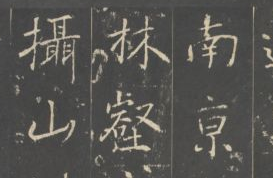 南京
林壑
攝山